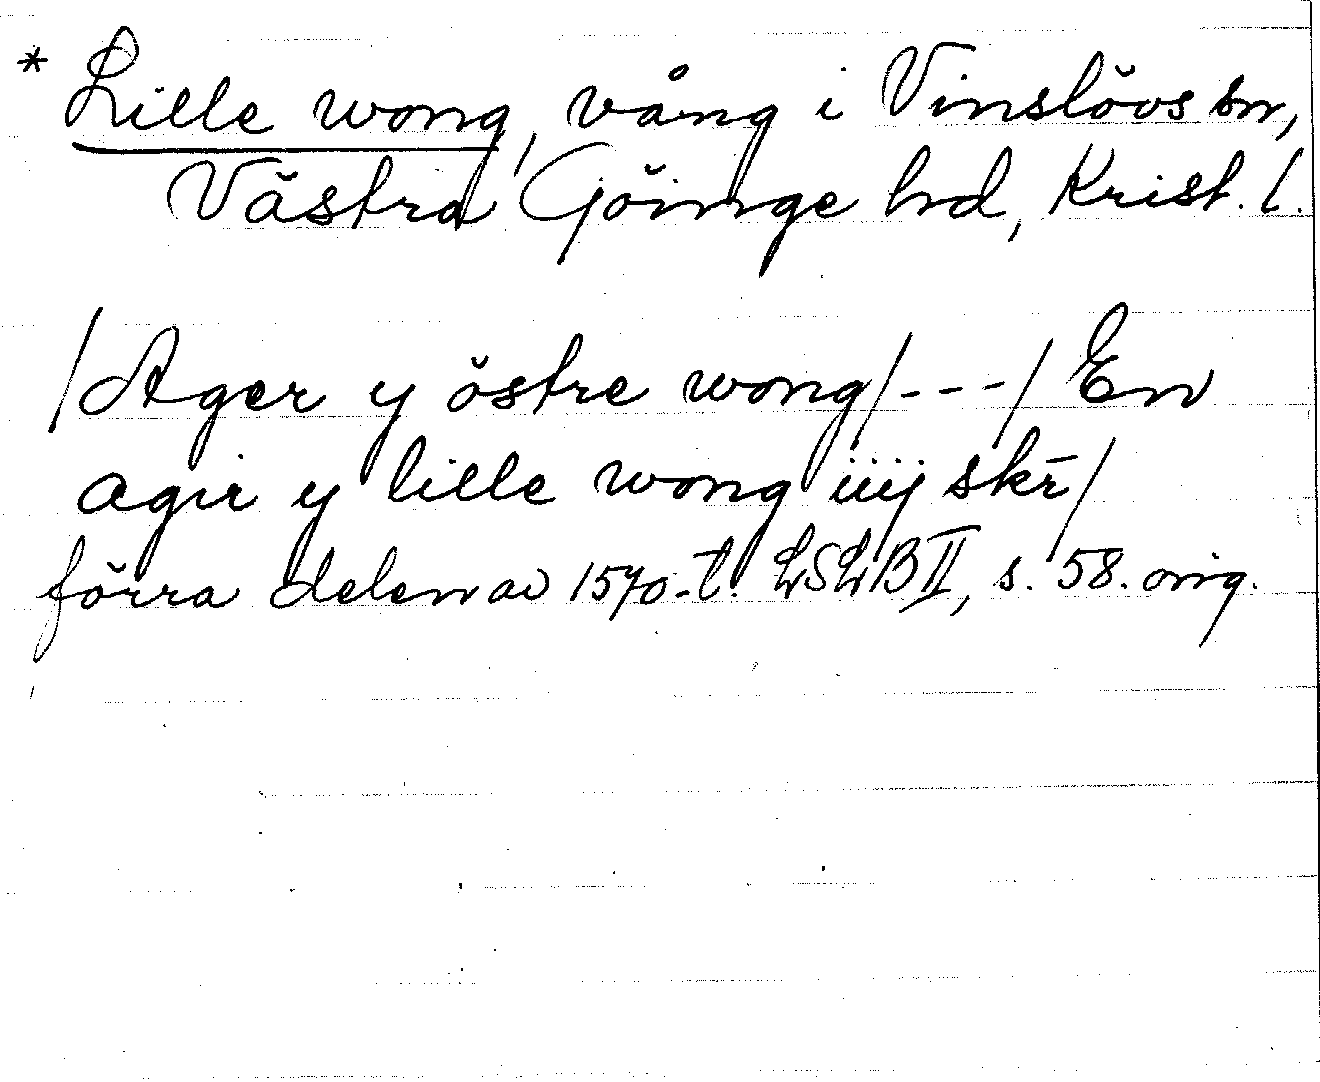 * Lille wong, vång i Vinslövs sn,
Västra Göinge hd, Krist. l.
/Ager y östre wong/---/ En
agir y lille wong iiij skr̄/
förra delen av 1570-t. LSLB II, s. 58. orig.